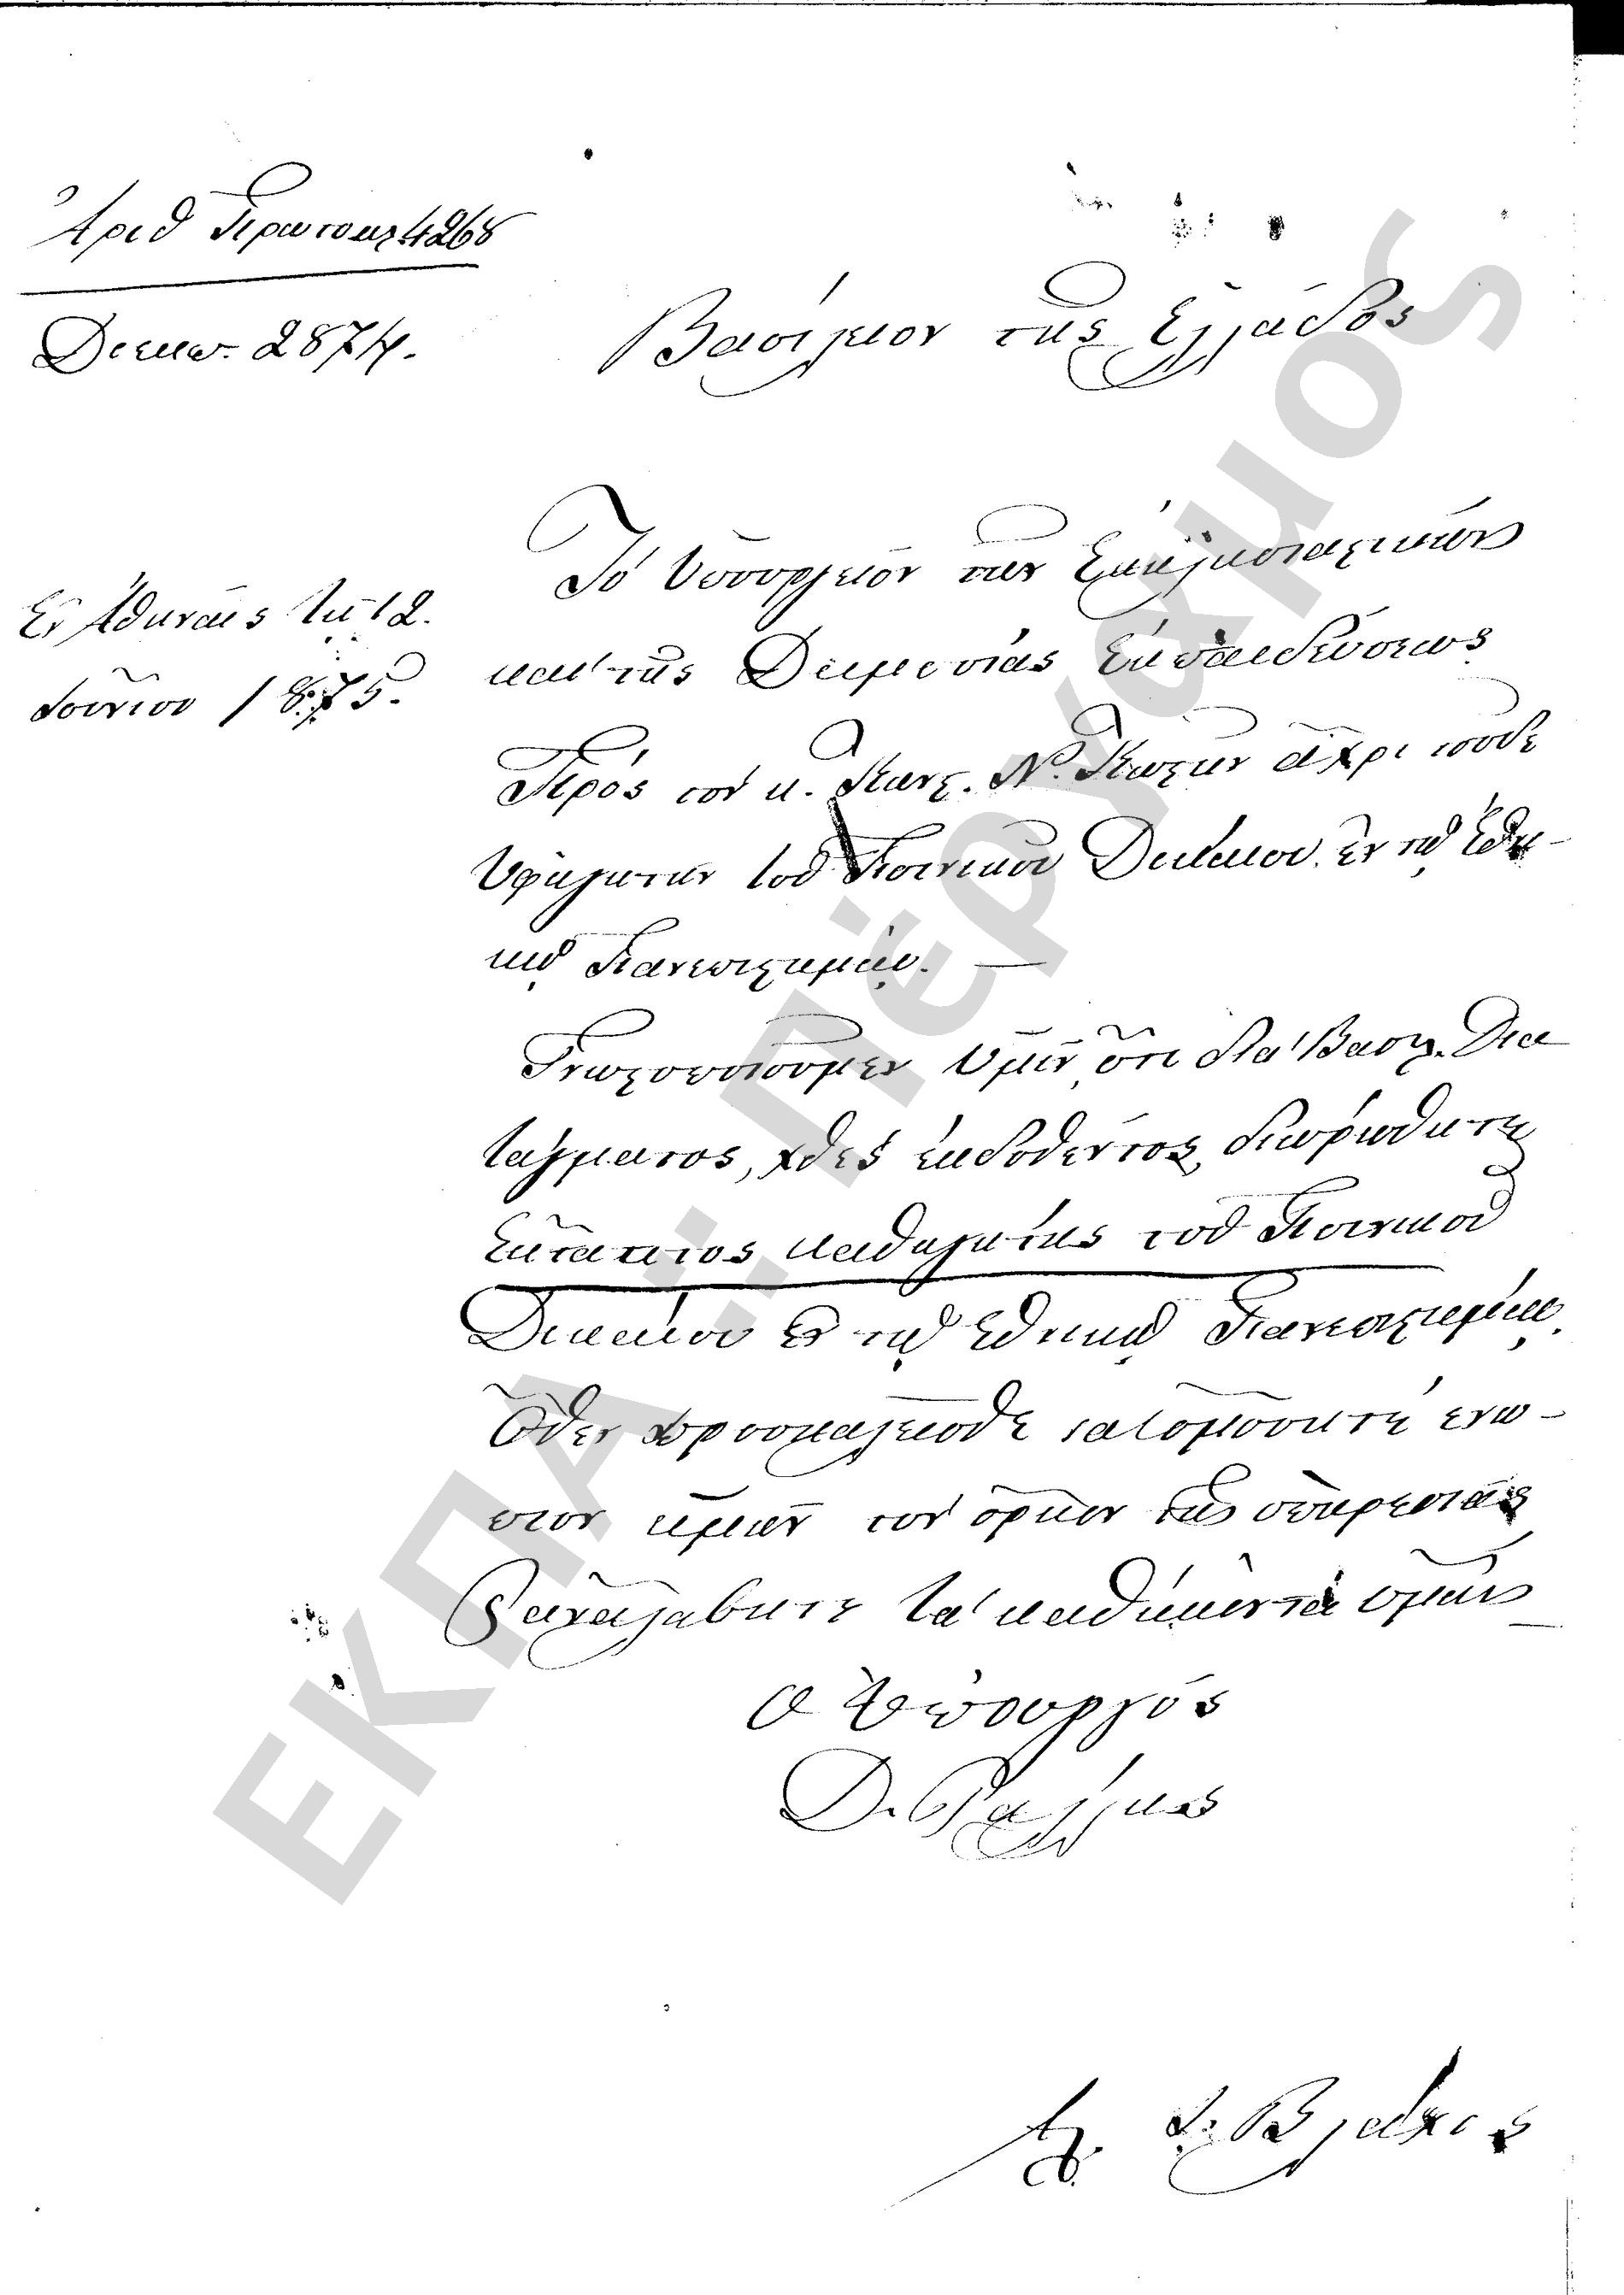 Ἀριθ Πρωτοκ 4268
Διεκπ. 2874.
Βασίλειον τῆς Ἑλλάδος
Ἐν Ἀθήναις τῇ 12.
Ἰουνίου 1875.
Τὸ Ὑπουργεῖον τῶν Ἐκκλησιαστικῶν
καὶ τῆς Δημοσίας Ἐκπαιδεύσεως
Πρὸς τὸν κ. Κωνς. Ν. Κωστῆν ἄχρι τοῦδε
Ὑφηγητὴν τοῦ Ποινικοῦ Δικαίου ἐν τῷ Ἐθνι-
κῷ Πανεπιστημίῳ. —
Γνωστοποιοῦμεν Ὑμῖν ὅτι διὰ Βασιλ. Δια
τάγματος, χθὲς ἐκδοθέντος, διωρίσθητε
ἔκτακτος καθηγητὴς τοῦ Ποινικοῦ
Δικαίου ἐν τῷ Ἐθνικῷ Πανεπιστημίῳ.
Ὅθεν προσκαλεῖσθε ἵνα ὀμόσητε ἐνώ-
πιον ἡμῶν τὸν ὅρκον τῆς ὑπηρεσίας
& ἀναλάβητε τὰ καθήκοντα ὑμῶν
Ὁ Ὑπουργός
Δ.
Βλάχος
ΕΚΠΑ.: Πέργαμος